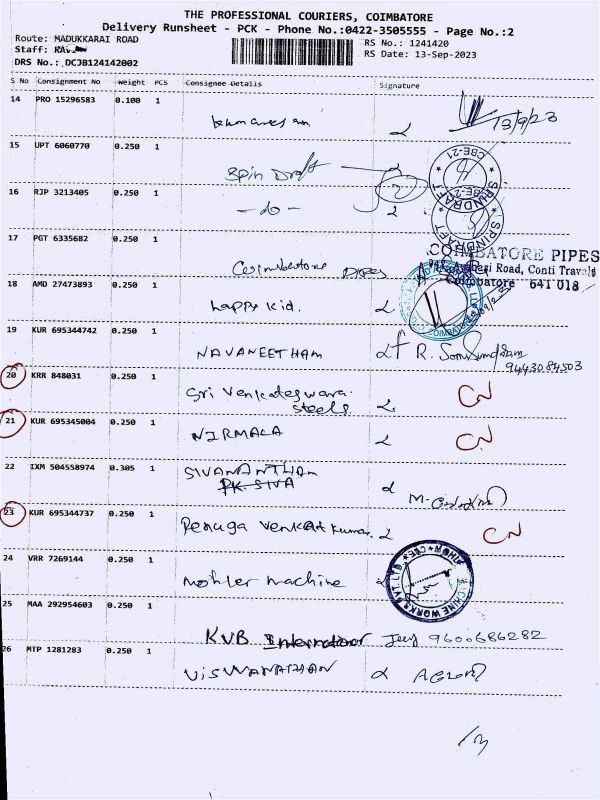 THE PROFESSIONAL COURIERS, COIMBATORE
Delivery Runsheet - PCK - Phone No.:0422-3505555 - Page No.:2
Route: MADUKKARAI ROAD
RS No.: 1241420
Staff:
RS Date: 13-Sep-2023
DRS No.: DCJB124142002
S No Consignment No Weight PCS Consignee Details Signature
14 PRO 15296583 0.100 1
13/9/23
15 UPT 6060770 0.250 1
Spin Draft
CBE-21
SPINDRAFT
16 RJP 3213405 0.250 1
- do -
SPINDRAFT
17 PGT 6335682 0.250 1
Coimbatore Pipes
COIMBATORE PIPES
Road, Conti Travels
Coimbatore 641 018
18 AMD 27473893 0.250 1
happy kid.
19 KUR 695344742 0.250 1
NAVANEETHAM
R. Somsundaram
9443084503
20 KRR 848031 0.250 1
Sri Venkateswara
steels
CN
21 KUR 695345004 0.250 1
NIRMALA
CN
22 IXM 504558974 0.305 1
SIVANANTHAM
PK. SIVA
23 KUR 695344737 0.250 1
Renuga Venkat kumar
CN
24 VRR 7269144 0.250 1
mohler machine
25 MAA 292954603 0.250 1
KVB International Jeey 9600686282
26 MTP 1281283 0.250 1
VISWANATHAN